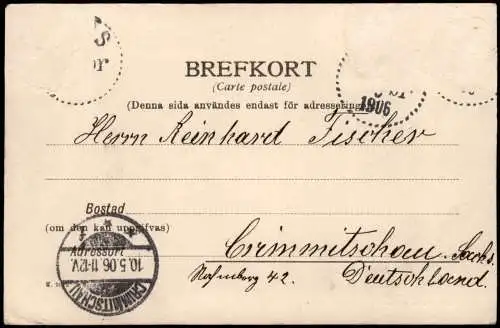 S
or
BREFKORT
(Carte postale)
(Denna sida användes endast för adressering.)
1906
Herrn Reinhard Fischer
Bostad
(om den kan uppgifvas)
Adressort
10.5.06.11-12V.
CRIMMITSCHAU
Crimmitschau, Sachs.
42.
Deutschland.